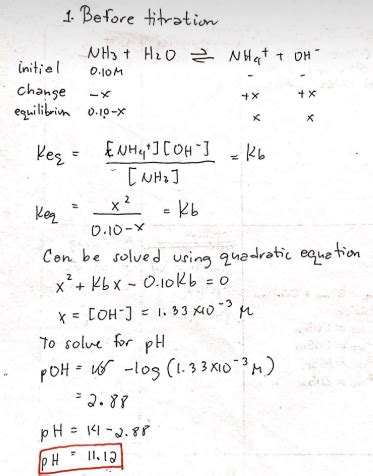 1. Before titration
NH3 + H2O ⇌ NH4+ + OH-
initiel 0.10M - -
change -x +x +x
equilibrium 0.10-x x x
Keq = [NH4+][OH-] / [NH3] = Kb
Keq = x² / 0.10-x = Kb
Can be solved using quadratic equation
x² + Kbx - 0.10Kb = 0
x = [OH-] = 1.33 x10⁻³ M
To solve for pH
pOH = -log (1.33x10⁻³ M)
= 2.88
pH = 14 - 2.88
pH = 11.12